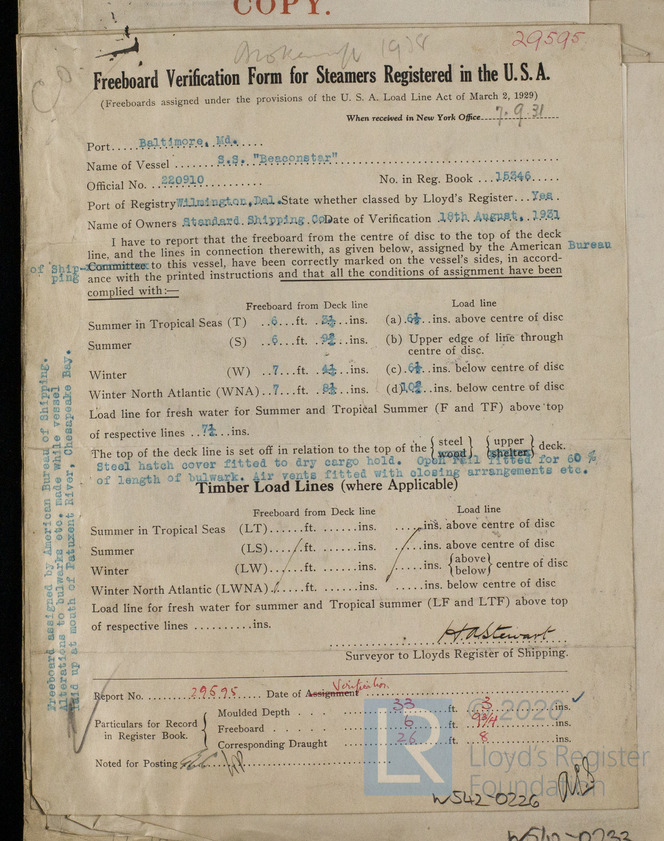 COPY.
1938
29595
Freeboard Verification Form for Steamers Registered in the U.S.A.
(Freeboards assigned under the provisions of the U. S. A. Load Line Act of March 2, 1929)
When received in New York Office 7.9.31
Port Baltimore, Md.
Name of Vessel S.S. "Beaconstar"
Official No. 220910 No. in Reg. Book 15346
Port of Registry Wilmington, Del. State whether classed by Lloyd's Register Yes
Name of Owners Standard Shipping Co Date of Verification 18th August, 1931
I have to report that the freeboard from the centre of disc to the top of the deck
line, and the lines in connection therewith, as given below, assigned by the American Bureau
of Shipping Committee to this vessel, have been correctly marked on the vessel's sides, in accord-
ance with the printed instructions and that all the conditions of assignment have been
complied with:—
Freeboard from Deck line Load line
Summer in Tropical Seas (T) 6 ft. ins. (a) ins. above centre of disc
Summer (S) 6 ft. ins. (b) Upper edge of line through
centre of disc.
Winter (W) 7 ft. ins. (c) ins. below centre of disc
Winter North Atlantic (WNA) 7 ft. ins. (d) ins. below centre of disc
Load line for fresh water for Summer and Tropical Summer (F and TF) above top
of respective lines ins.
The top of the deck line is set off in relation to the top of the {steel wood} {upper shelter} deck.
Steel hatch cover fitted to dry cargo hold. Open rail fitted for 60 %
of length of bulwark. Air vents fitted with closing arrangements etc.
Timber Load Lines (where Applicable)
Freeboard from Deck line Load line
Summer in Tropical Seas (LT) ft. ins. ins. above centre of disc
Summer (LS) ft. ins. ins. above centre of disc
Winter (LW) ft. ins. ins. {above below} centre of disc
Winter North Atlantic (LWNA) ft. ins. ins. below centre of disc
Load line for fresh water for summer and Tropical summer (LF and LTF) above top
of respective lines ins.
H A Stewart
Surveyor to Lloyds Register of Shipping.
Freeboard assigned by American Bureau of Shipping.
Alterations to bulwarks etc. made while vessel
laid up at mouth of Patuxent River, Chesapeake Bay.
Report No. 29595 Date of Assignment Verification
Particulars for Record in Register Book.
Moulded Depth 33 ft. 3 ins.
Freeboard 6 ft. 9 3/4 ins.
Corresponding Draught 26 ft. 8 ins.
Noted for Posting
LR
© 2026
Lloyd's Register
Foundation
W542-0226